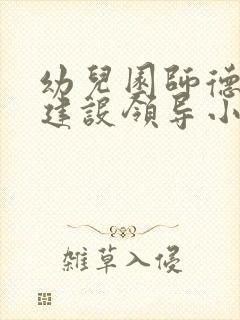 幼兒園師德
建設領导小
雑草入侵